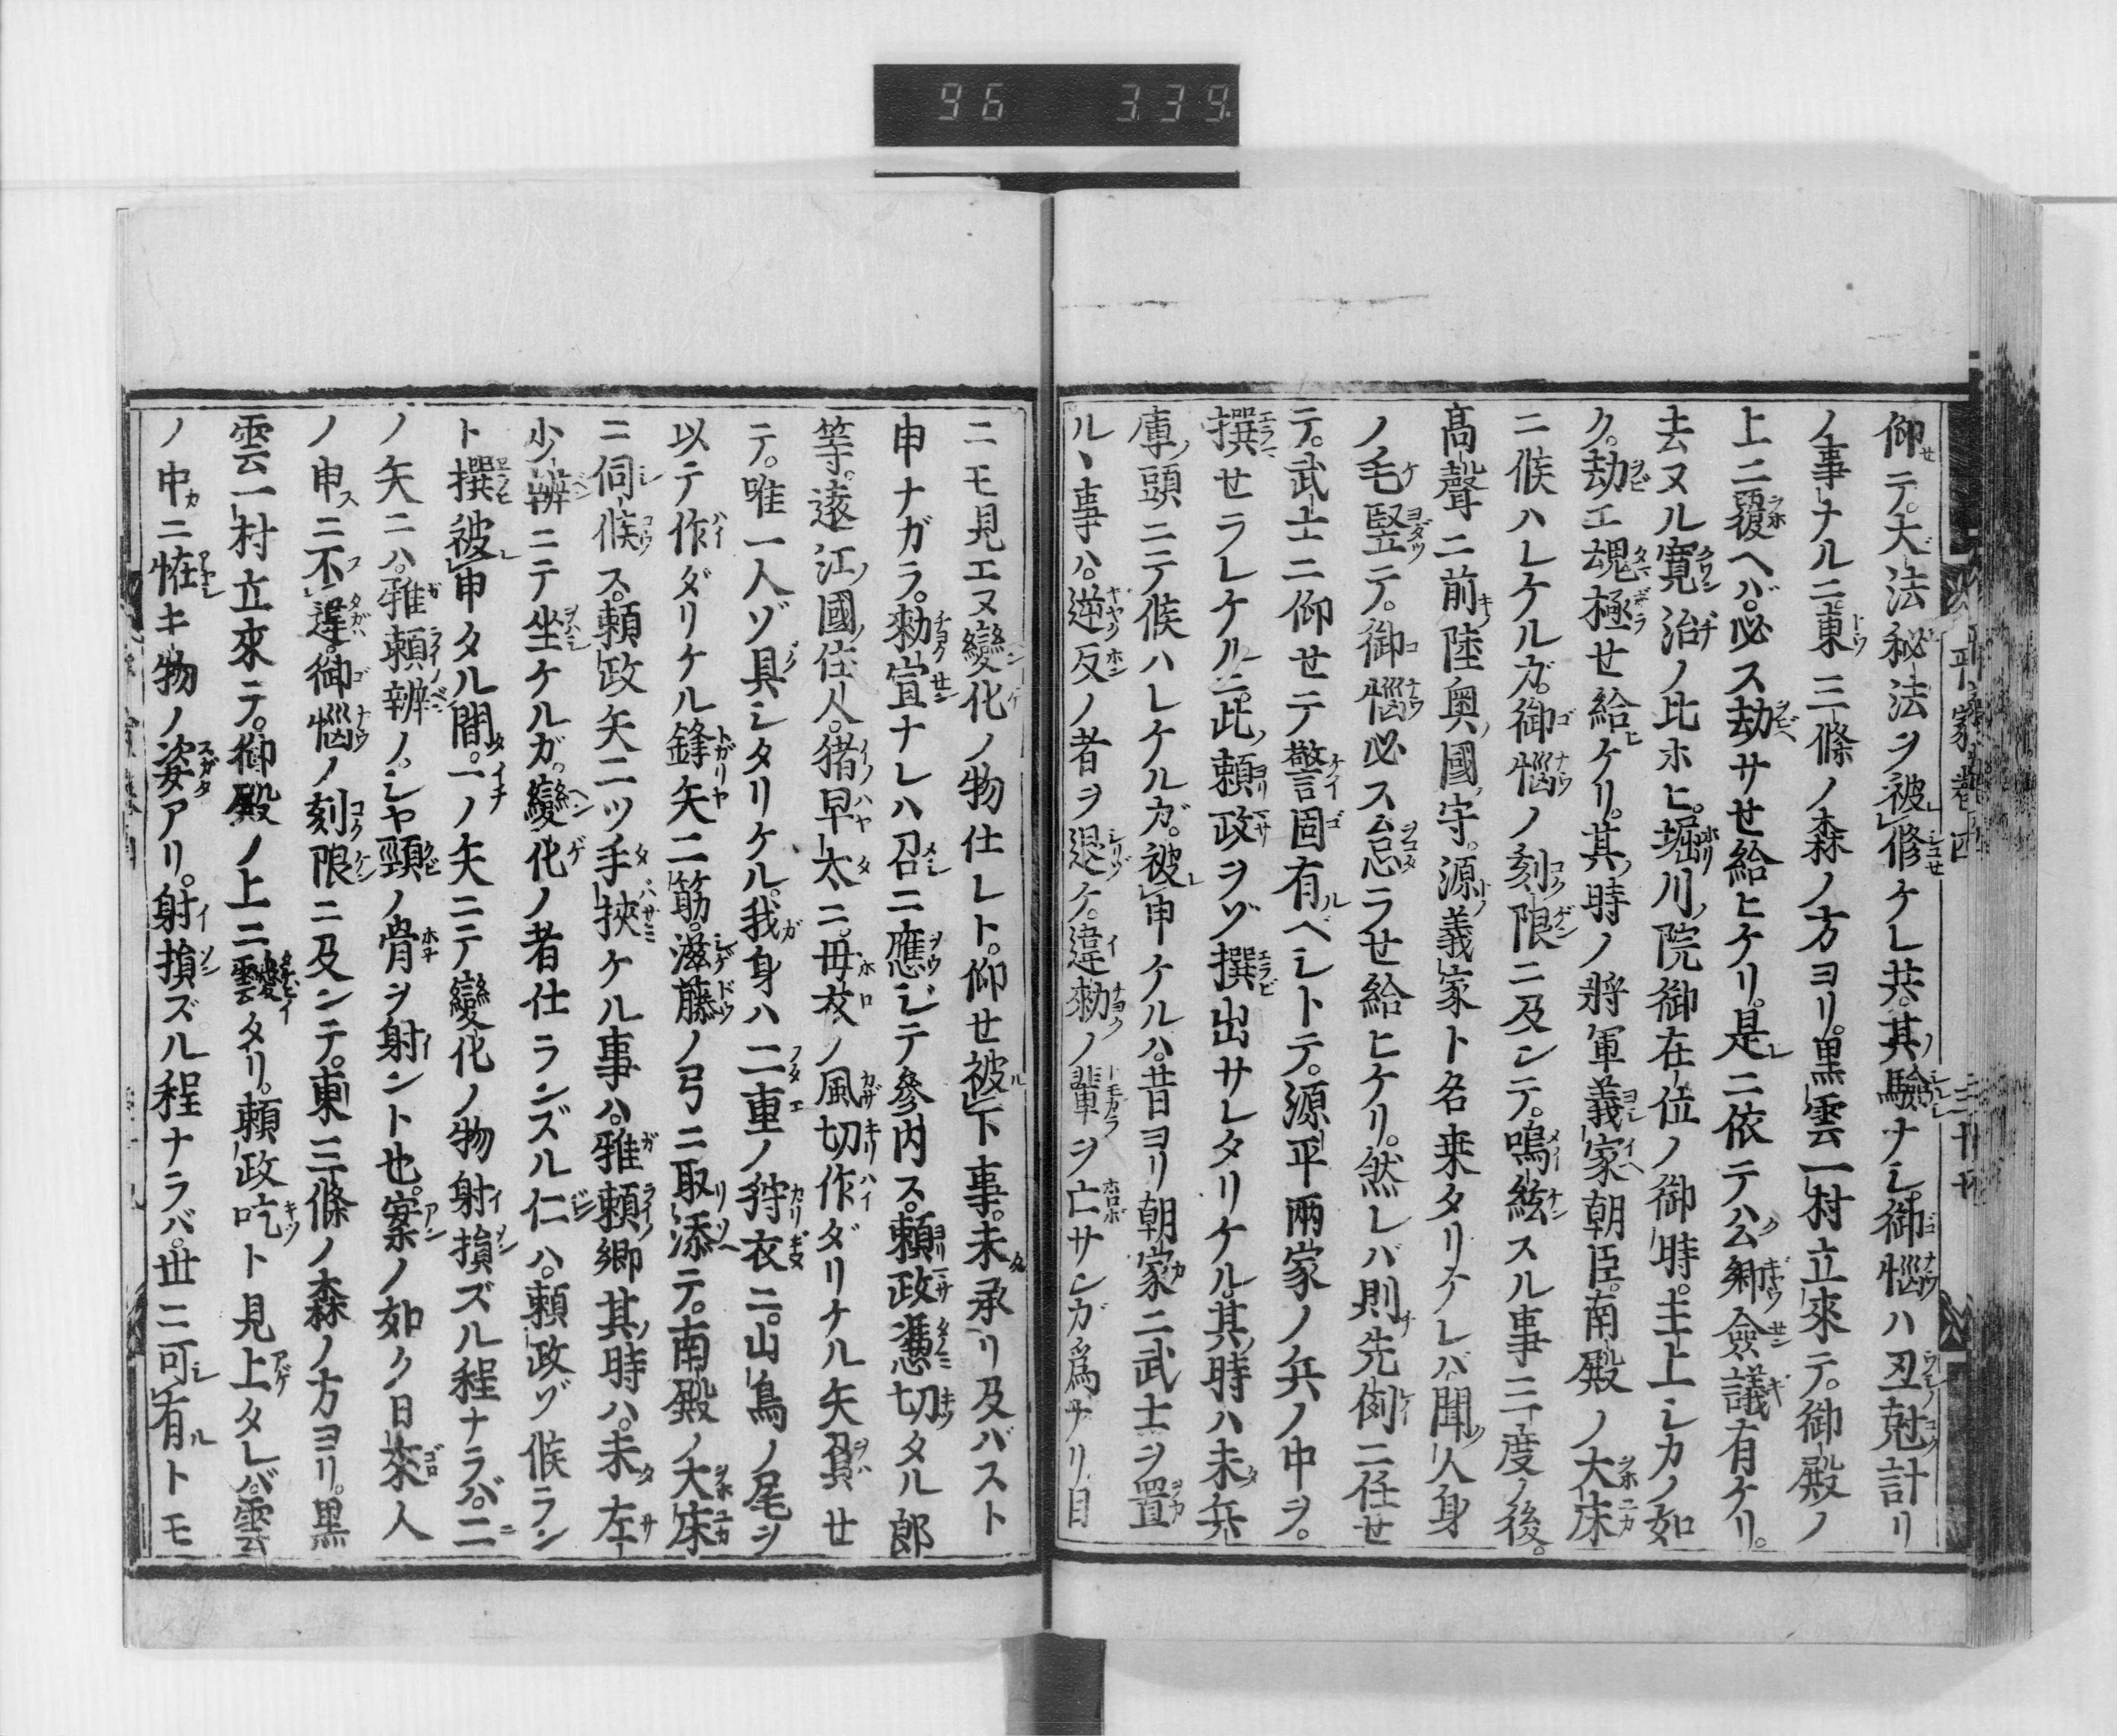 96 339.
平家巻四
仰テ。大法秘法ヲ被修ケレ共。其驗ナシ。御惱ハ丑尅計リ
ノ事ナルニ。東三條ノ森ノ方ヨリ。黒雲一村立來テ。御殿ノ
上ニ覆ヘバ。必ス劫サせ給ヒケリ。是ニ依テハ公卿僉議有ケリ。
去ヌル寛治ノ比ホヒ。堀川ノ院御在位ノ御時。主上シカノ如
ク。劫エ魂極せ給ケリ。其時ノ將軍義家朝臣。南殿ノ大床
ニ候ハレケルガ。御惱ノ刻限ニ及ンテ。鳴絃スル事三度ノ後。
髙聲ニ前陸奥國守。源義家ト名来タリケレバ。聞人身
ノ毛竪テ。御惱必ス忌ラせ給ヒケリ。然レバ則先例ニ任せ
テ。武士ニ仰せテ警固有ベシトテ。源平兩家ノ兵ノ中ヲ。
撰せラレケルニ。此頼政ヲゾ撰出サレタリケル。其時ハ未兵
庫頭ニテ候ハレケルガ。被申ケルハ。昔ヨリ朝家ニ武士ヲ置
ルヽ事ハ。逆反ノ者ヲ退ケ。違勅ノ輩ヲ亡サンガ爲ナリ。目
ニモ見エヌ變化ノ物仕レト。仰せ被下事。未承リ及バスト
申ナガラ。勅宣ナレハ召ニ應シテ參内ス。頼政憑切タル郎
等。遠江國住人。猪早太ニ。母衣ノ風切作ダリナル矢負せ
テ。唯一人ゾ具シタリケル。我身ハ二重ノ狩衣ニ。山鳥ノ尾ヲ
以テ作ダリケル鋒矢二筋。滋藤ノ弓ニ取添テ。南殿ノ大床
ニ伺候ス。頼政矢二ツ手挾ケル事ハ。雅頼卿其時ハ。未左
少辨ニテ坐ケルガ。變化ノ者仕ランズル仁ハ。頼政ゾ候ラン
ト撰被申タル間。一ノ矢ニテ變化ノ物射損ズル程ナラバ。二
ノ矢ニハ。雅頼辨ノ。シヤ頸ノ骨ヲ射ント也。案ノ如ク日來人
ノ申ニ不違。御惱ノ刻限ニ及ンテ。東三條ノ森ノ方ヨリ。黒
雲一村立來テ。御殿ノ上ニ靉タリ。頼政吃ト見上タレバ。雲
ノ中ニ恠キ物ノ姿アリ。射損ズル程ナラバ。世ニ可有トモ